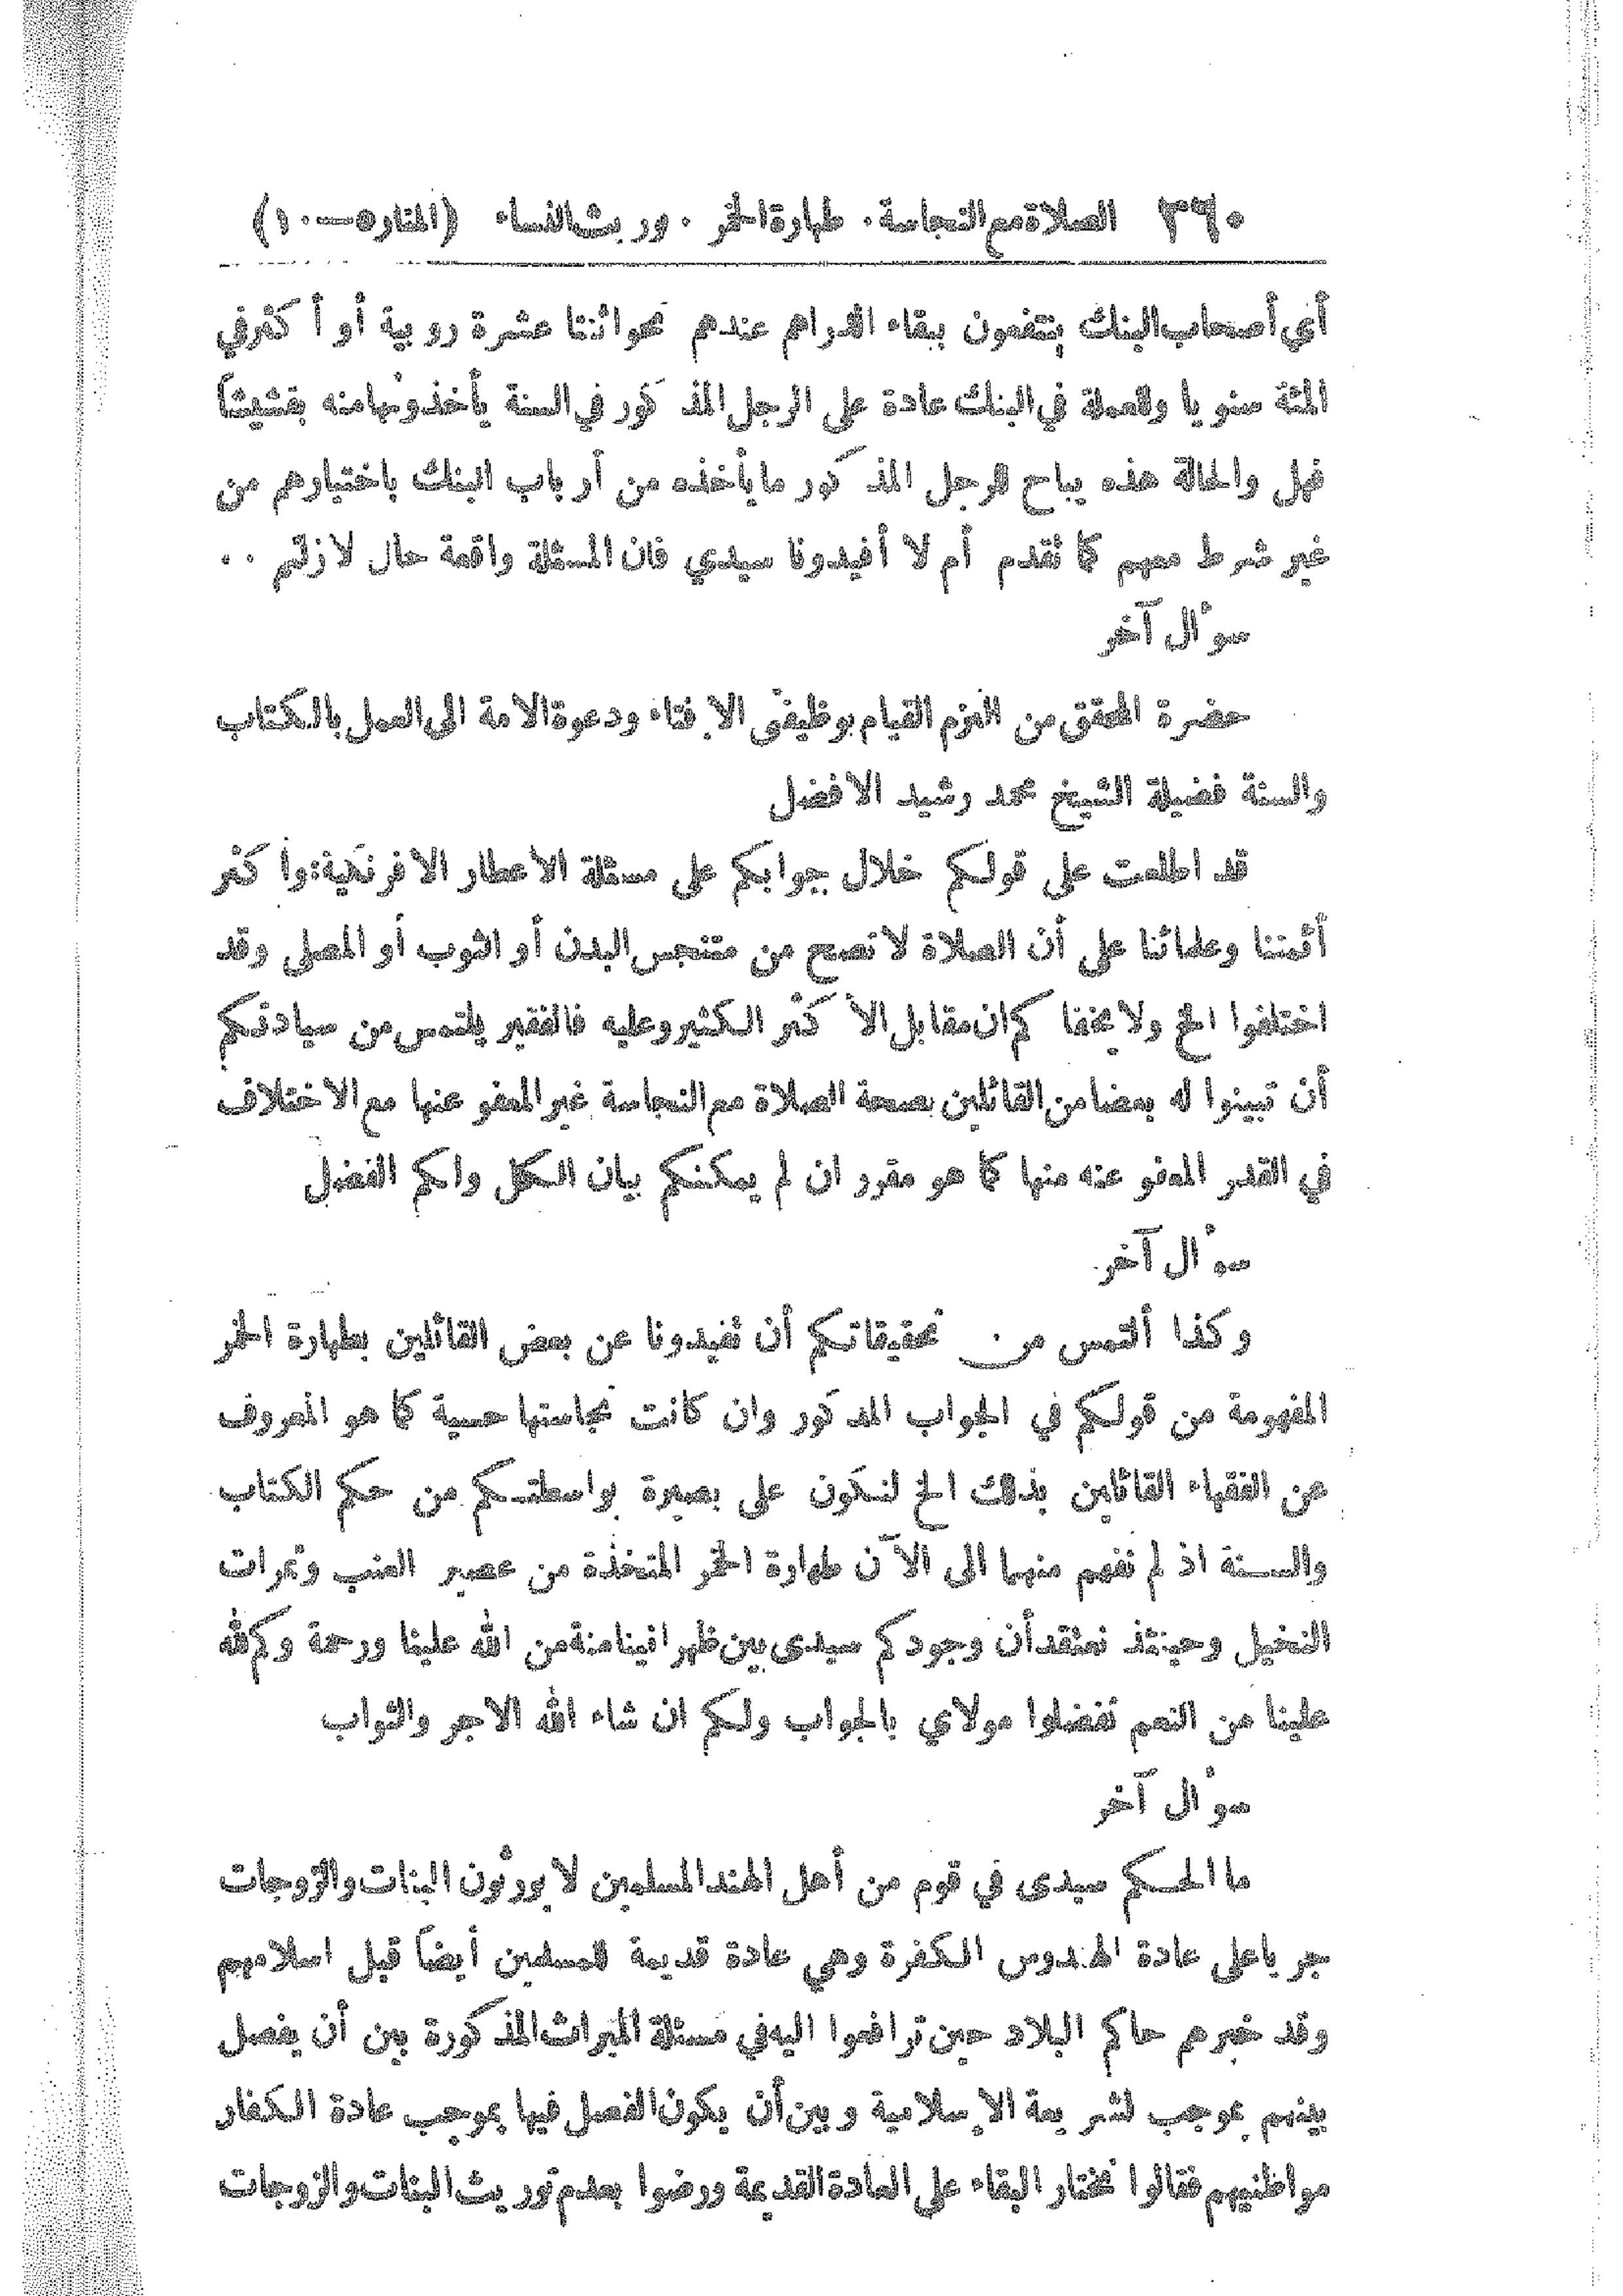 ٣٩٠ الصلاة مع النجاسة . طهارة الخمر . وريث النساء (المنار ٥ — ١٠)
أي أصحاب البنك ينتفعون ببقاء الدراهم عندهم نحو اثنتا عشرة روبية أو أكثر في
المئة سنويا وللعملة في البنك عادة على الرجل المذكور في السنة يأخذونها منه بقشيشاً
فهل والحالة هذه يباح للرجل المذكور ما يأخذه من أرباب البنك باختيارهم من
غير شرط معهم كما تقدم أم لا أفيدونا سيدي فان المسئلة واقعة حال لازلتم ..
سؤال آخر
حضرة المحقق من التزم القيام بوظيفتي الإفتاء ودعوة الامة الى العمل بالكتاب
والسنة فضيلة الشيخ محمد رشيد الافضل
قد اطلعت على قولكم خلال جوابكم على مسئلة الاعطار الافرنكية: وأكثر
أئمتنا وعلمائنا على أن الصلاة لا تصح من متنجس البدن أو الثوب أو المصلى وقد
اختلفوا الخ ولا يخفاكم ان مقابل الأكثر الكثير وعليه فالفقير يلتمس من سيادتكم
أن تبينوا له بعضا من القائلين بصحة الصلاة مع النجاسة غير المعفو عنها مع الاختلاف
في القدر المعفو عنه منها كما هو مقرر ان لم يمكنكم بيان الكل ولكم الفضل
سؤال آخر
وكذا ألتمس من تحقيقاتكم أن تفيدونا عن بعض القائلين بطهارة الخمر
المفهومة من قولكم في الجواب المذكور وان كانت نجاستها حسية كما هو المعروف
عن الفقهاء القائلين بذلك الخ لنكون على بصيرة بواسطتكم من حكم الكتاب
والسنة اذ لم نفهم منهما الى الآن طهارة الخمر المتخذة من عصير العنب وثمرات
النخيل وحينئذ نعتقد أن وجودكم سيدى بين ظهرانينا منة من الله علينا ورحمة وكم لله
علينا من النعم تفضلوا مولاي بالجواب ولكم ان شاء الله الاجر والثواب
سؤال آخر
ما الحكم سيدى في قوم من أهل الهند المسلمين لا يورثون البنات والزوجات
جريا على عادة الهندوس الكفرة وهي عادة قديمة للمسلمين أيضاً قبل اسلامهم
وقد خيرهم حاكم البلاد حين ترافعوا اليه في مسئلة الميراث المذكورة بين أن يفصل
بينهم بموجب لشريعة الإسلامية وبين أن يكون الفصل فيها بموجب عادة الكفار
مواطنيهم فقالوا نختار البقاء على العادة القديمة ورضوا بعدم توريث البنات والزوجات